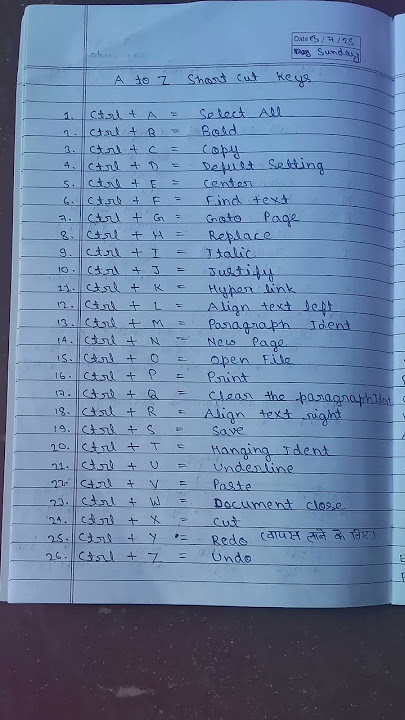 Date 13/7/25
Page Sunday
A to Z Short Cut keys
1. Ctrl + A = Select All
2. Ctrl + B = Bold
3. Ctrl + C = Copy
4. Ctrl + D = Defult Setting
5. Ctrl + E = Center
6. Ctrl + F = Find text
7. Ctrl + G = Goto Page
8. Ctrl + H = Replace
9. Ctrl + I = Italic
10. Ctrl + J = Justify
11. Ctrl + K = Hyper link
12. Ctrl + L = Align text left
13. Ctrl + M = Paragraph Ident
14. Ctrl + N = New Page
15. Ctrl + O = Open File
16. Ctrl + P = Print
17. Ctrl + Q = Clear the paragraph Ident
18. Ctrl + R = Align text right
19. Ctrl + S = Save
20. Ctrl + T = Hanging Ident
21. Ctrl + U = Underline
22. Ctrl + V = Paste
23. Ctrl + W = Document close
24. Ctrl + X = Cut
25. Ctrl + Y = Redo (वापस लाने के लिए)
26. Ctrl + Z = Undo